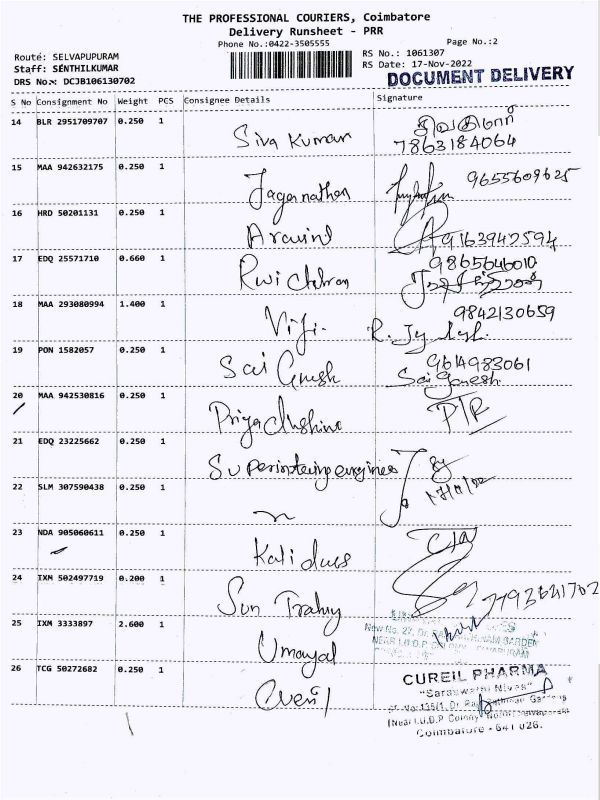 THE PROFESSIONAL COURIERS, Coimbatore
Delivery Runsheet - PRR
Phone No.:0422-3505555
Page No.:2
Routé: SELVAPUPURAM
RS No.: 1061307
Staff: SENTHILKUMAR
RS Date: 17-Nov-2022
DRS No.: DCJB106130702
DOCUMENT DELIVERY
S No Consignment No Weight PCS Consignee Details Signature
14 BLR 2951709707 0.250 1 Siva Kumar சிவகுமார்
7863184064
15 MAA 942632175 0.250 1 Jagannathan 9655609625
16 HRD 50201131 0.250 1 Aravind 9163942594
17 EDQ 25571710 0.660 1 9865646010
18 MAA 293080994 1.400 1 Viji. 9842130659
19 PON 1582057 0.250 1 Sai Ganesh 9614983061
Sai Ganesh
20 MAA 942530816 0.250 1 Priyadharshine
21 EDQ 23225662 0.250 1
22 SLM 307590438 0.250 1
23 NDA 905060611 0.250 1 Kalidass
24 IXM 502497719 0.200 1 Sun
25 IXM 3333897 2.600 1 Umayal
New No. 27, Dr.
GARDEN
26 TCG 50272682 0.250 1
CUREIL PHARMA
"Saraswathi Nivas"
Coimbatore - 641 026.